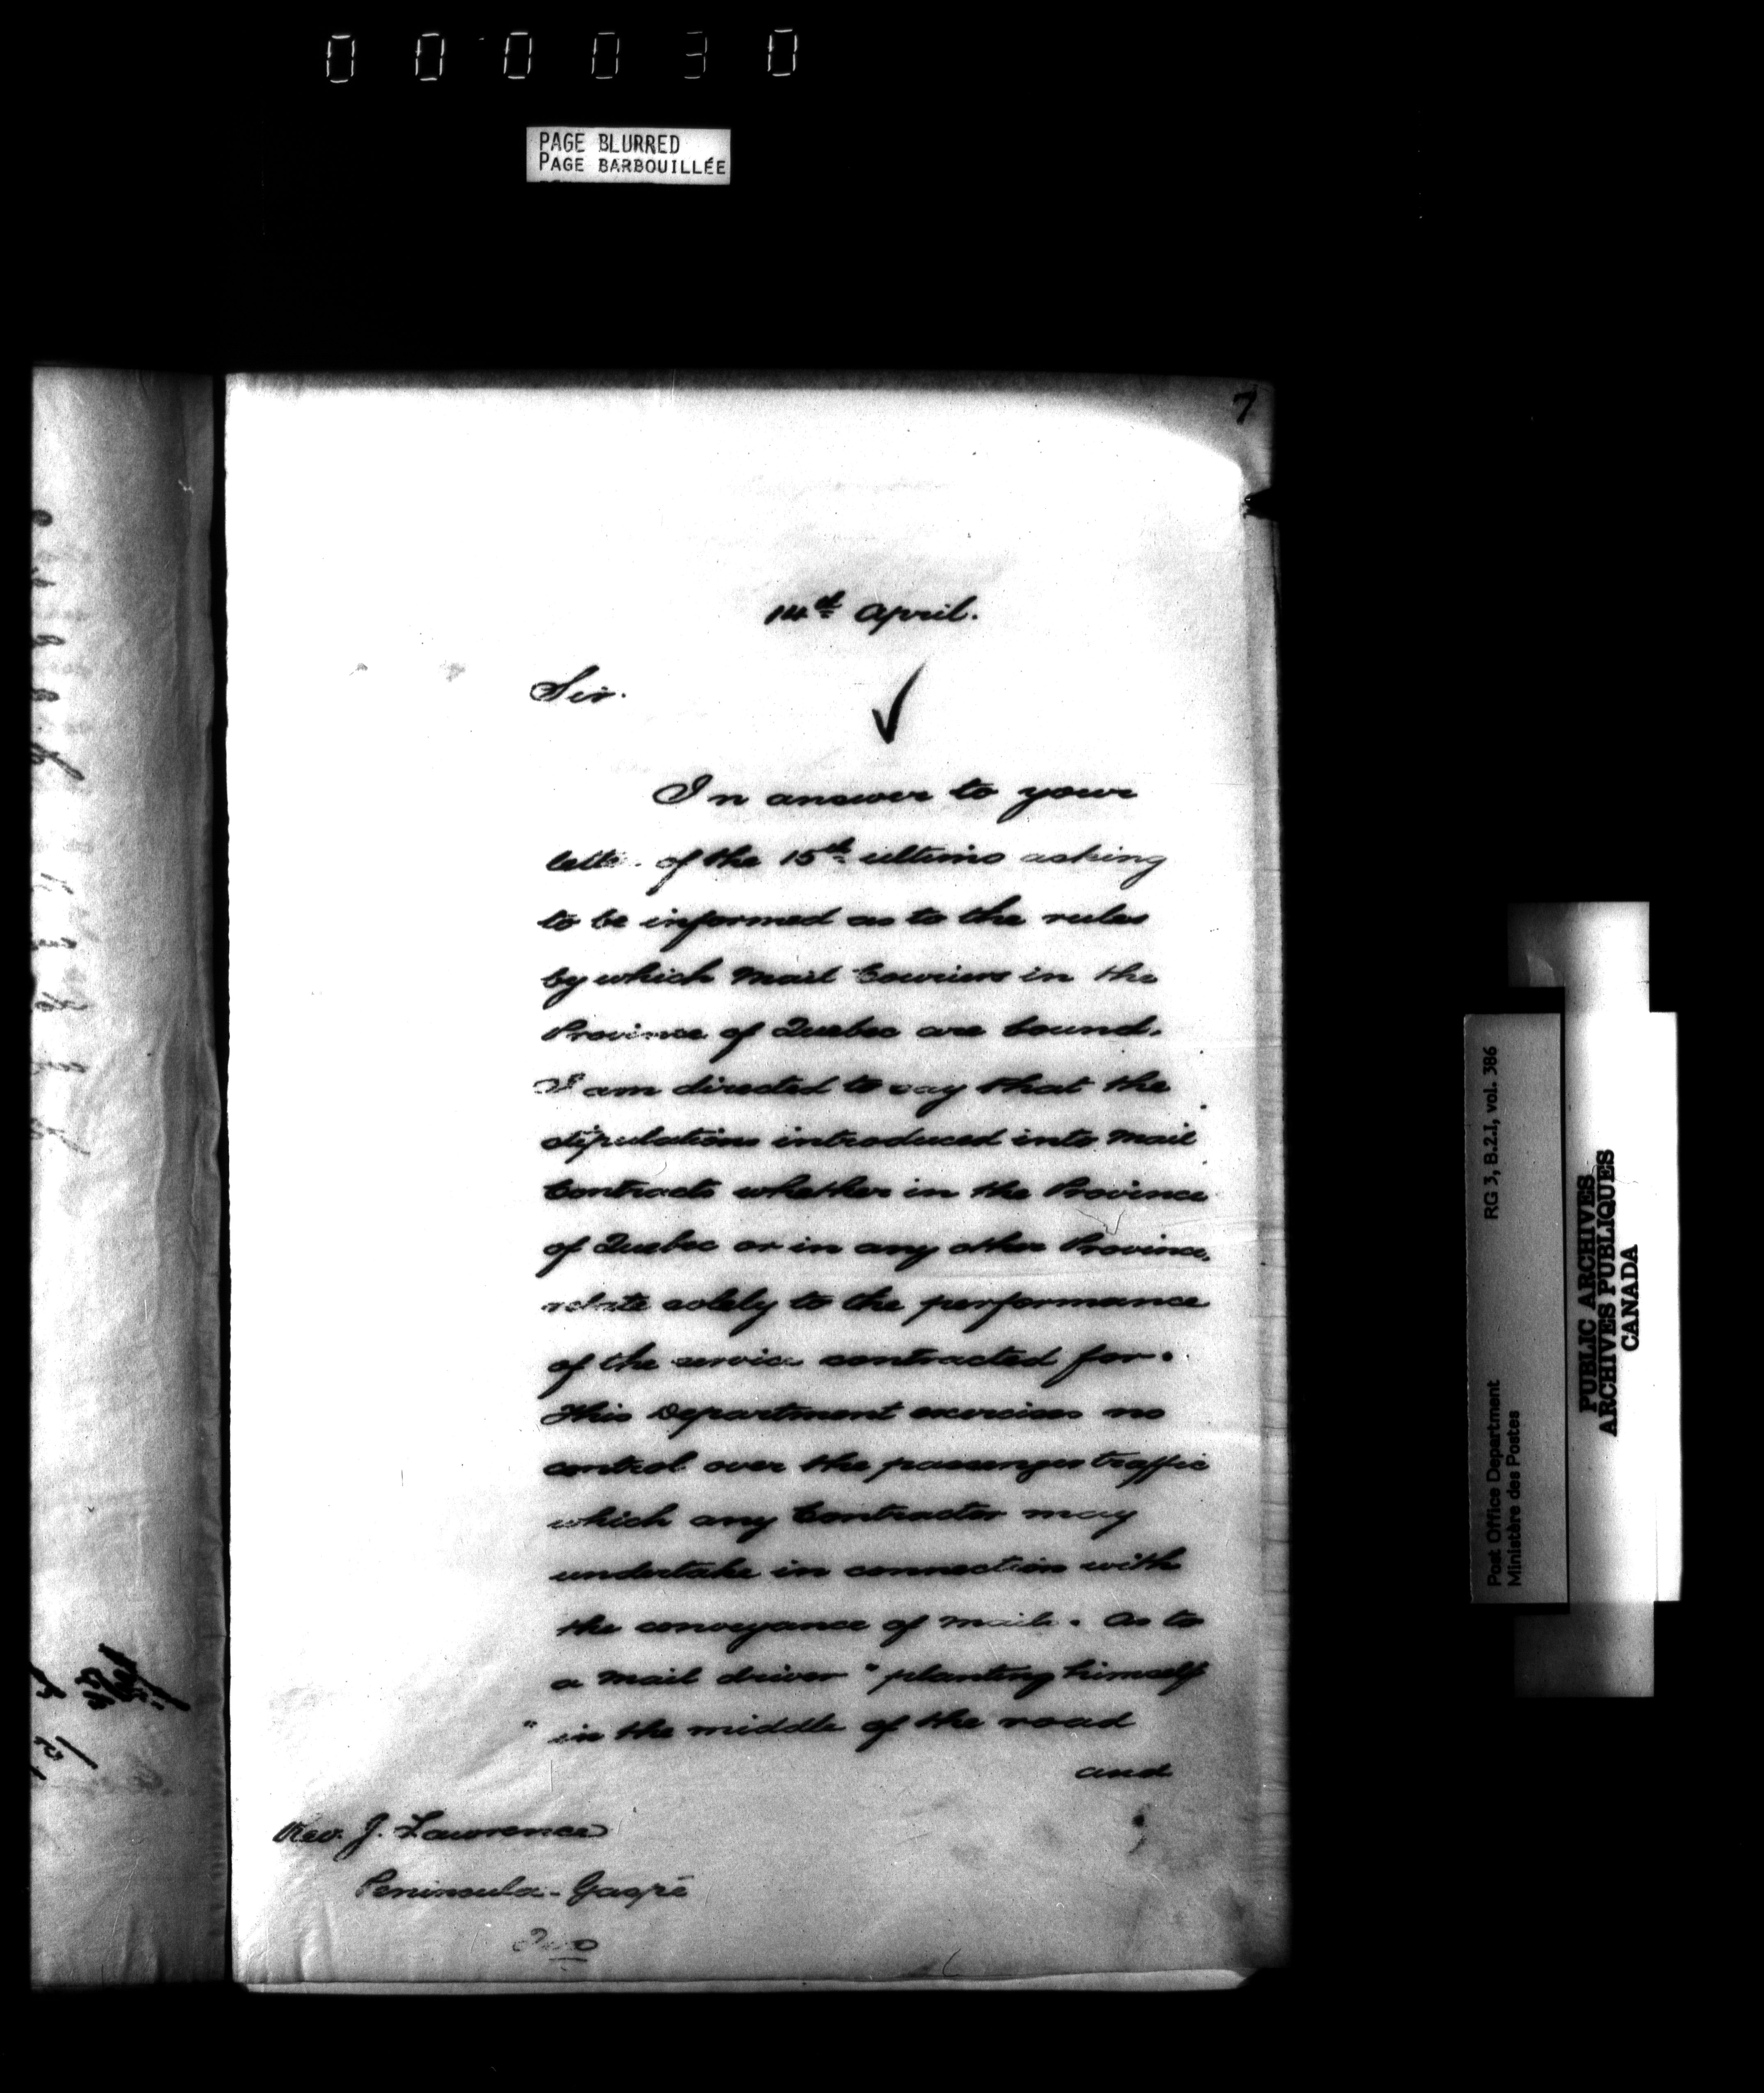 000030
PAGE BLURRED
PAGE BARBOUILLÉE
7
14th April.
Sir.
In answer to your
letter of the 15th ultimo asking
to be informed as to the rules
by which Mail Couriers in the
Province of Quebec are bound.
I am directed to say that the
stipulations introduced into Mail
Contracts whether in the Province
of Quebec or in any other Province,
relate solely to the performance
of the service contracted for.
This Department exercises no
control over the passenger traffic
which any Contractor may
undertake in connection with
the conveyance of mails. As to
a Mail driver "planting himself
" in the middle of the road
and
Rev. J. Lawrence
Peninsula - Gaspé
Que
Post Office Department RG 3, B.2.I, vol. 386
Ministère des Postes
PUBLIC ARCHIVES
ARCHIVES PUBLIQUES
CANADA